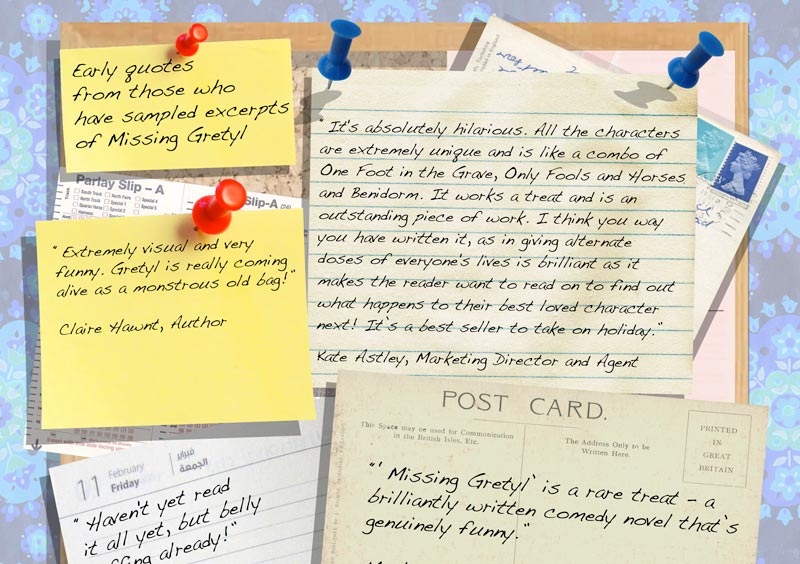 Early quotes
from those who
have sampled excerpts
of Missing Gretyl
Parlay Slip - A
Slip-A (26)
" It's absolutely hilarious. All the characters
are extremely unique and is like a combo of
One Foot in the Grave, Only Fools and Horses
and Benidorm. It works a treat and is an
outstanding piece of work. I think you way
you have written it, as in giving alternate
doses of everyone's lives is brilliant as it
makes the reader want to read on to find out
what happens to their best loved character
next! It`s a best seller to take on holiday."
Kate Astley, Marketing Director and Agent
" Extremely visual and very
funny. Gretyl is really coming
alive as a monstrous old bag!"
Claire Hawnt, Author
POST CARD.
This Space may be used for Communication
in the British Isles, Etc.
The Address Only to be
Written Here.
PRINTED
IN
GREAT
BRITAIN
"' Missing Gretyl` is a rare treat - a
brilliantly written comedy novel that`s
genuinely funny."
11 February فبراير
Friday الجمعة
" Haven't yet read
it all yet, but belly
already!"